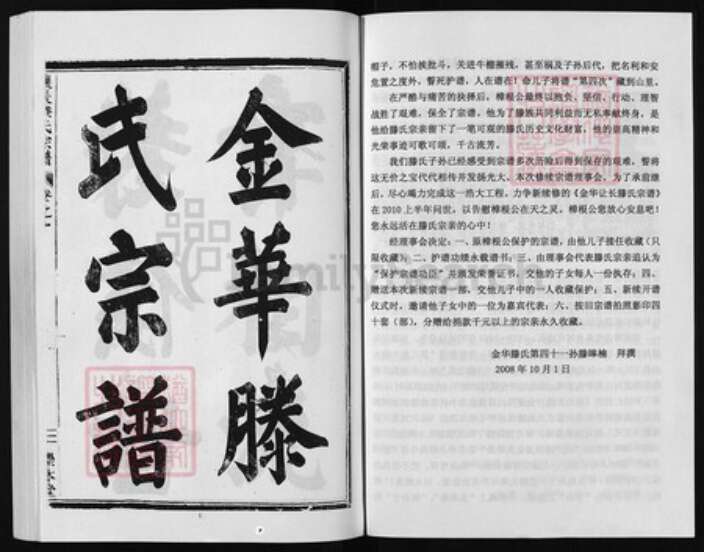 金華滕
氏宗譜
帽子，不怕挨批斗，关进牛棚摧残，甚至祸及子孙后代，把名利和安
危置之度外，誓死护谱，人在谱在！命儿子将谱“第四次”藏到山里。
在严酷与痛苦的抉择后，樟根公最终以抱负、坚信、行动、理智
战胜了艰难，保全了宗谱。他为了滕族共同利益而无私奉献终身，是
他给滕氏宗亲留下了一笔可观的滕氏历史文化财富，他的崇高精神和
光荣事迹可歌可颂，千古流芳。
我们滕氏子孙已经感受到宗谱多次历险后得到保存的艰难，誓将
这无价之宝代代相传并发扬光大。本次修续宗谱理事会，为了承前继
后，尽心竭力完成这一浩大工程，力争新续修的《金华让长滕氏宗谱》
在 2010 上半年问世，以告慰樟根公在天之灵。樟根公您放心安息吧！
您永远活在滕氏宗亲的心中！
经理事会决定：一、原樟根公保护的宗谱，由他儿子接任收藏（只
限收藏）；二、护谱功绩永载谱书；三、由理事会代表滕氏宗亲追认为
“保护宗谱功臣”并颁发荣誉证书，交他的子女每人一份执存；四、
赠送本次新续宗谱一部，交他儿子中的一人收藏保护；五、新续开谱
仪式时，邀请他子女中的一位为嘉宾代表；六、按旧宗谱拍照影印四
十套（部），分赠给捐款千元以上的宗亲永久收藏。
金华滕氏第四十一孙滕 拜撰
2008 年 10 月 1 日